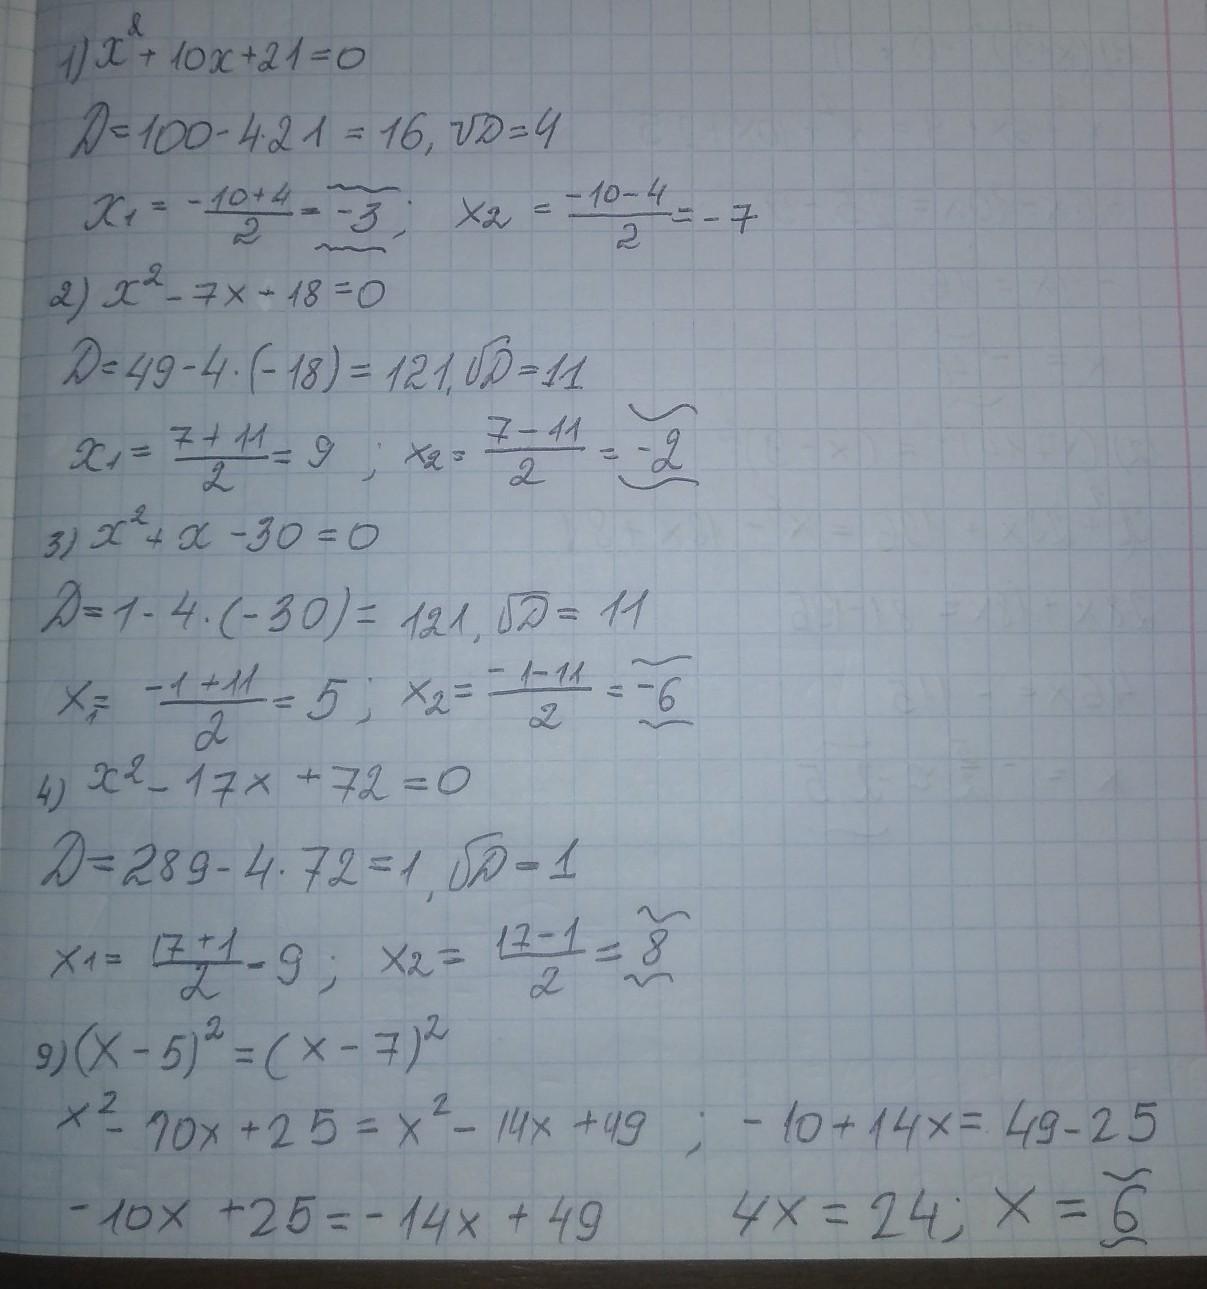 1) x² + 10x + 21 = 0
D = 100 - 4·21 = 16, √D = 4
x1 = (-10+4)/2 = -3; x2 = (-10-4)/2 = -7
2) x² - 7x - 18 = 0
D = 49 - 4·(-18) = 121, √D = 11
x1 = (7+11)/2 = 9; x2 = (7-11)/2 = -2
3) x² + x - 30 = 0
D = 1 - 4·(-30) = 121, √D = 11
x1 = (-1+11)/2 = 5; x2 = (-1-11)/2 = -6
4) x² - 17x + 72 = 0
D = 289 - 4·72 = 1, √D = 1
x1 = (17+1)/2 = 9; x2 = (17-1)/2 = 8
9) (x - 5)² = (x - 7)²
x² - 10x + 25 = x² - 14x + 49 ; -10 + 14x = 49 - 25
-10x + 25 = -14x + 49 4x = 24; x = 6